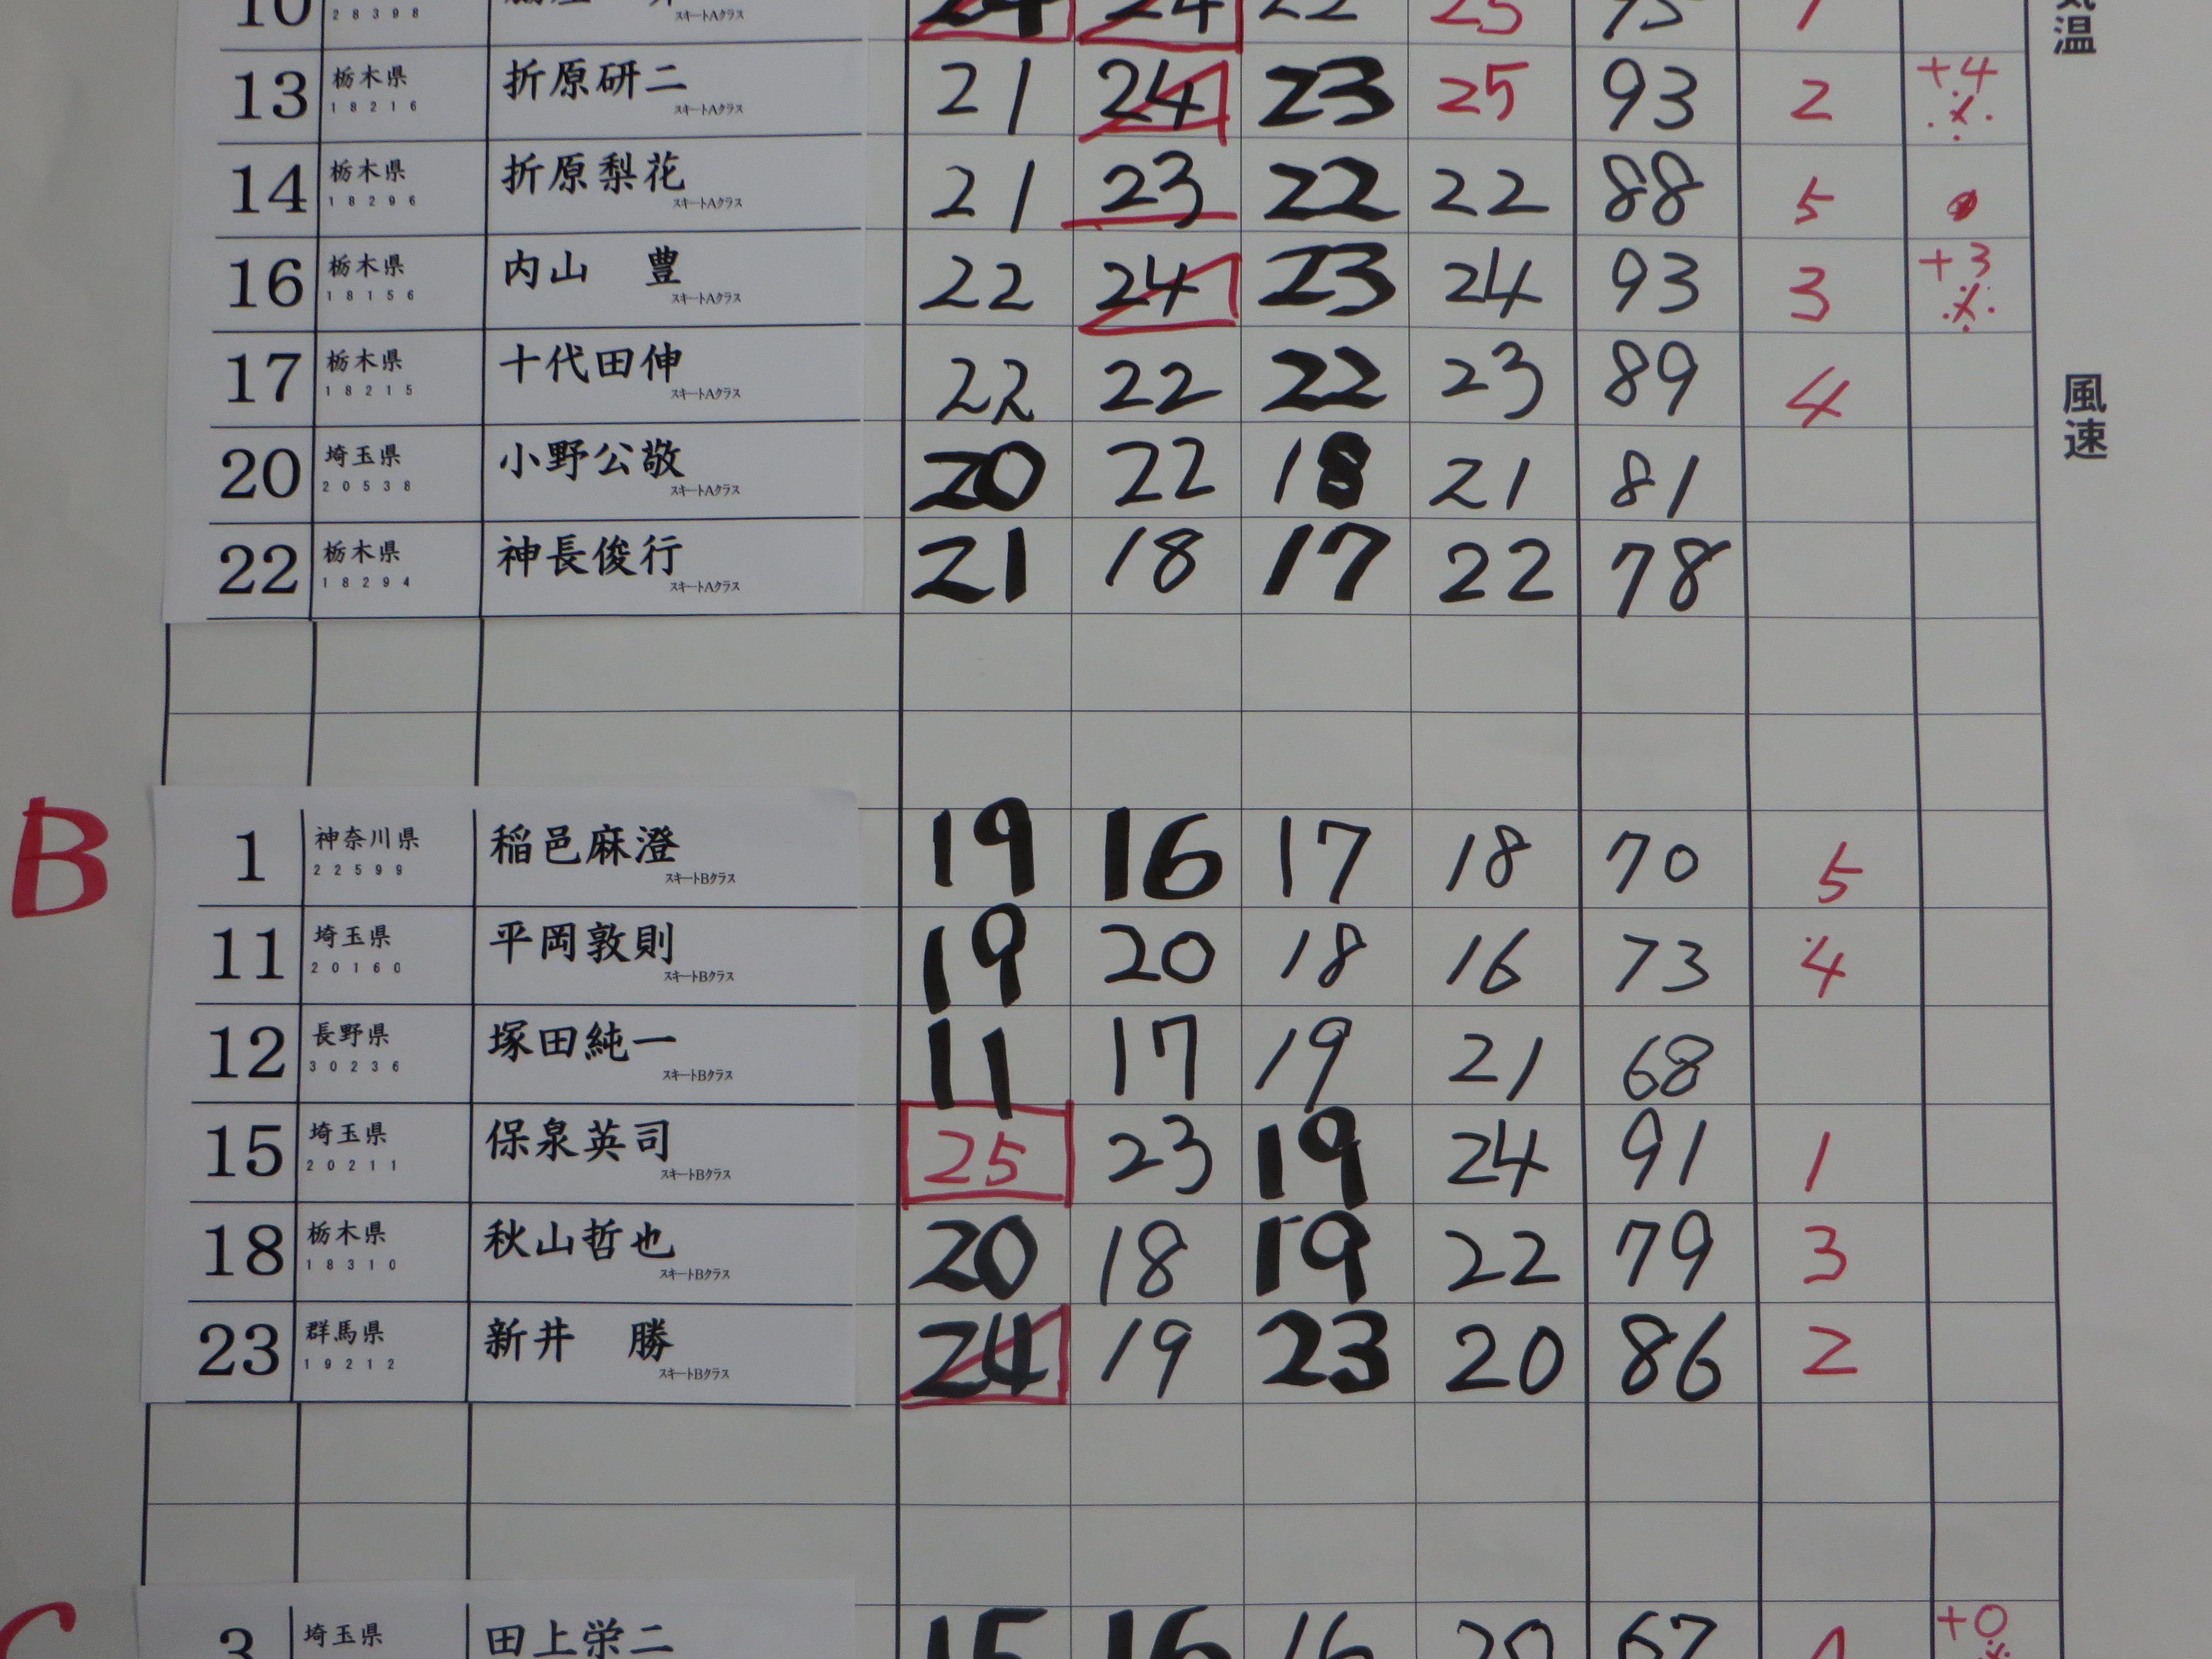 10 28398 スキートAクラス 24 24 22 25 95 1
温
13 栃木県 18216 折原研二 スキートAクラス 21 24 23 25 93 2 +4
14 栃木県 18296 折原梨花 スキートAクラス 21 23 22 22 88 5
16 栃木県 18156 内山 豊 スキートAクラス 22 24 23 24 93 3 +3
17 栃木県 18215 十代田伸 スキートAクラス 22 22 22 23 89 4
風速
20 埼玉県 20538 小野公敬 スキートAクラス 20 22 18 21 81
22 栃木県 18294 神長俊行 スキートAクラス 21 18 17 22 78
B
1 神奈川県 22599 稲邑麻澄 スキートBクラス 19 16 17 18 70 5
11 埼玉県 20160 平岡敦則 スキートBクラス 19 20 18 16 73 4
12 長野県 30236 塚田純一 スキートBクラス 11 17 19 21 68
15 埼玉県 20211 保泉英司 スキートBクラス 25 23 19 24 91 1
18 栃木県 18310 秋山哲也 スキートBクラス 20 18 19 22 79 3
23 群馬県 19212 新井 勝 スキートBクラス 24 19 23 20 86 2
C
3 埼玉県 田上栄二 15 16 16 20 67 +0